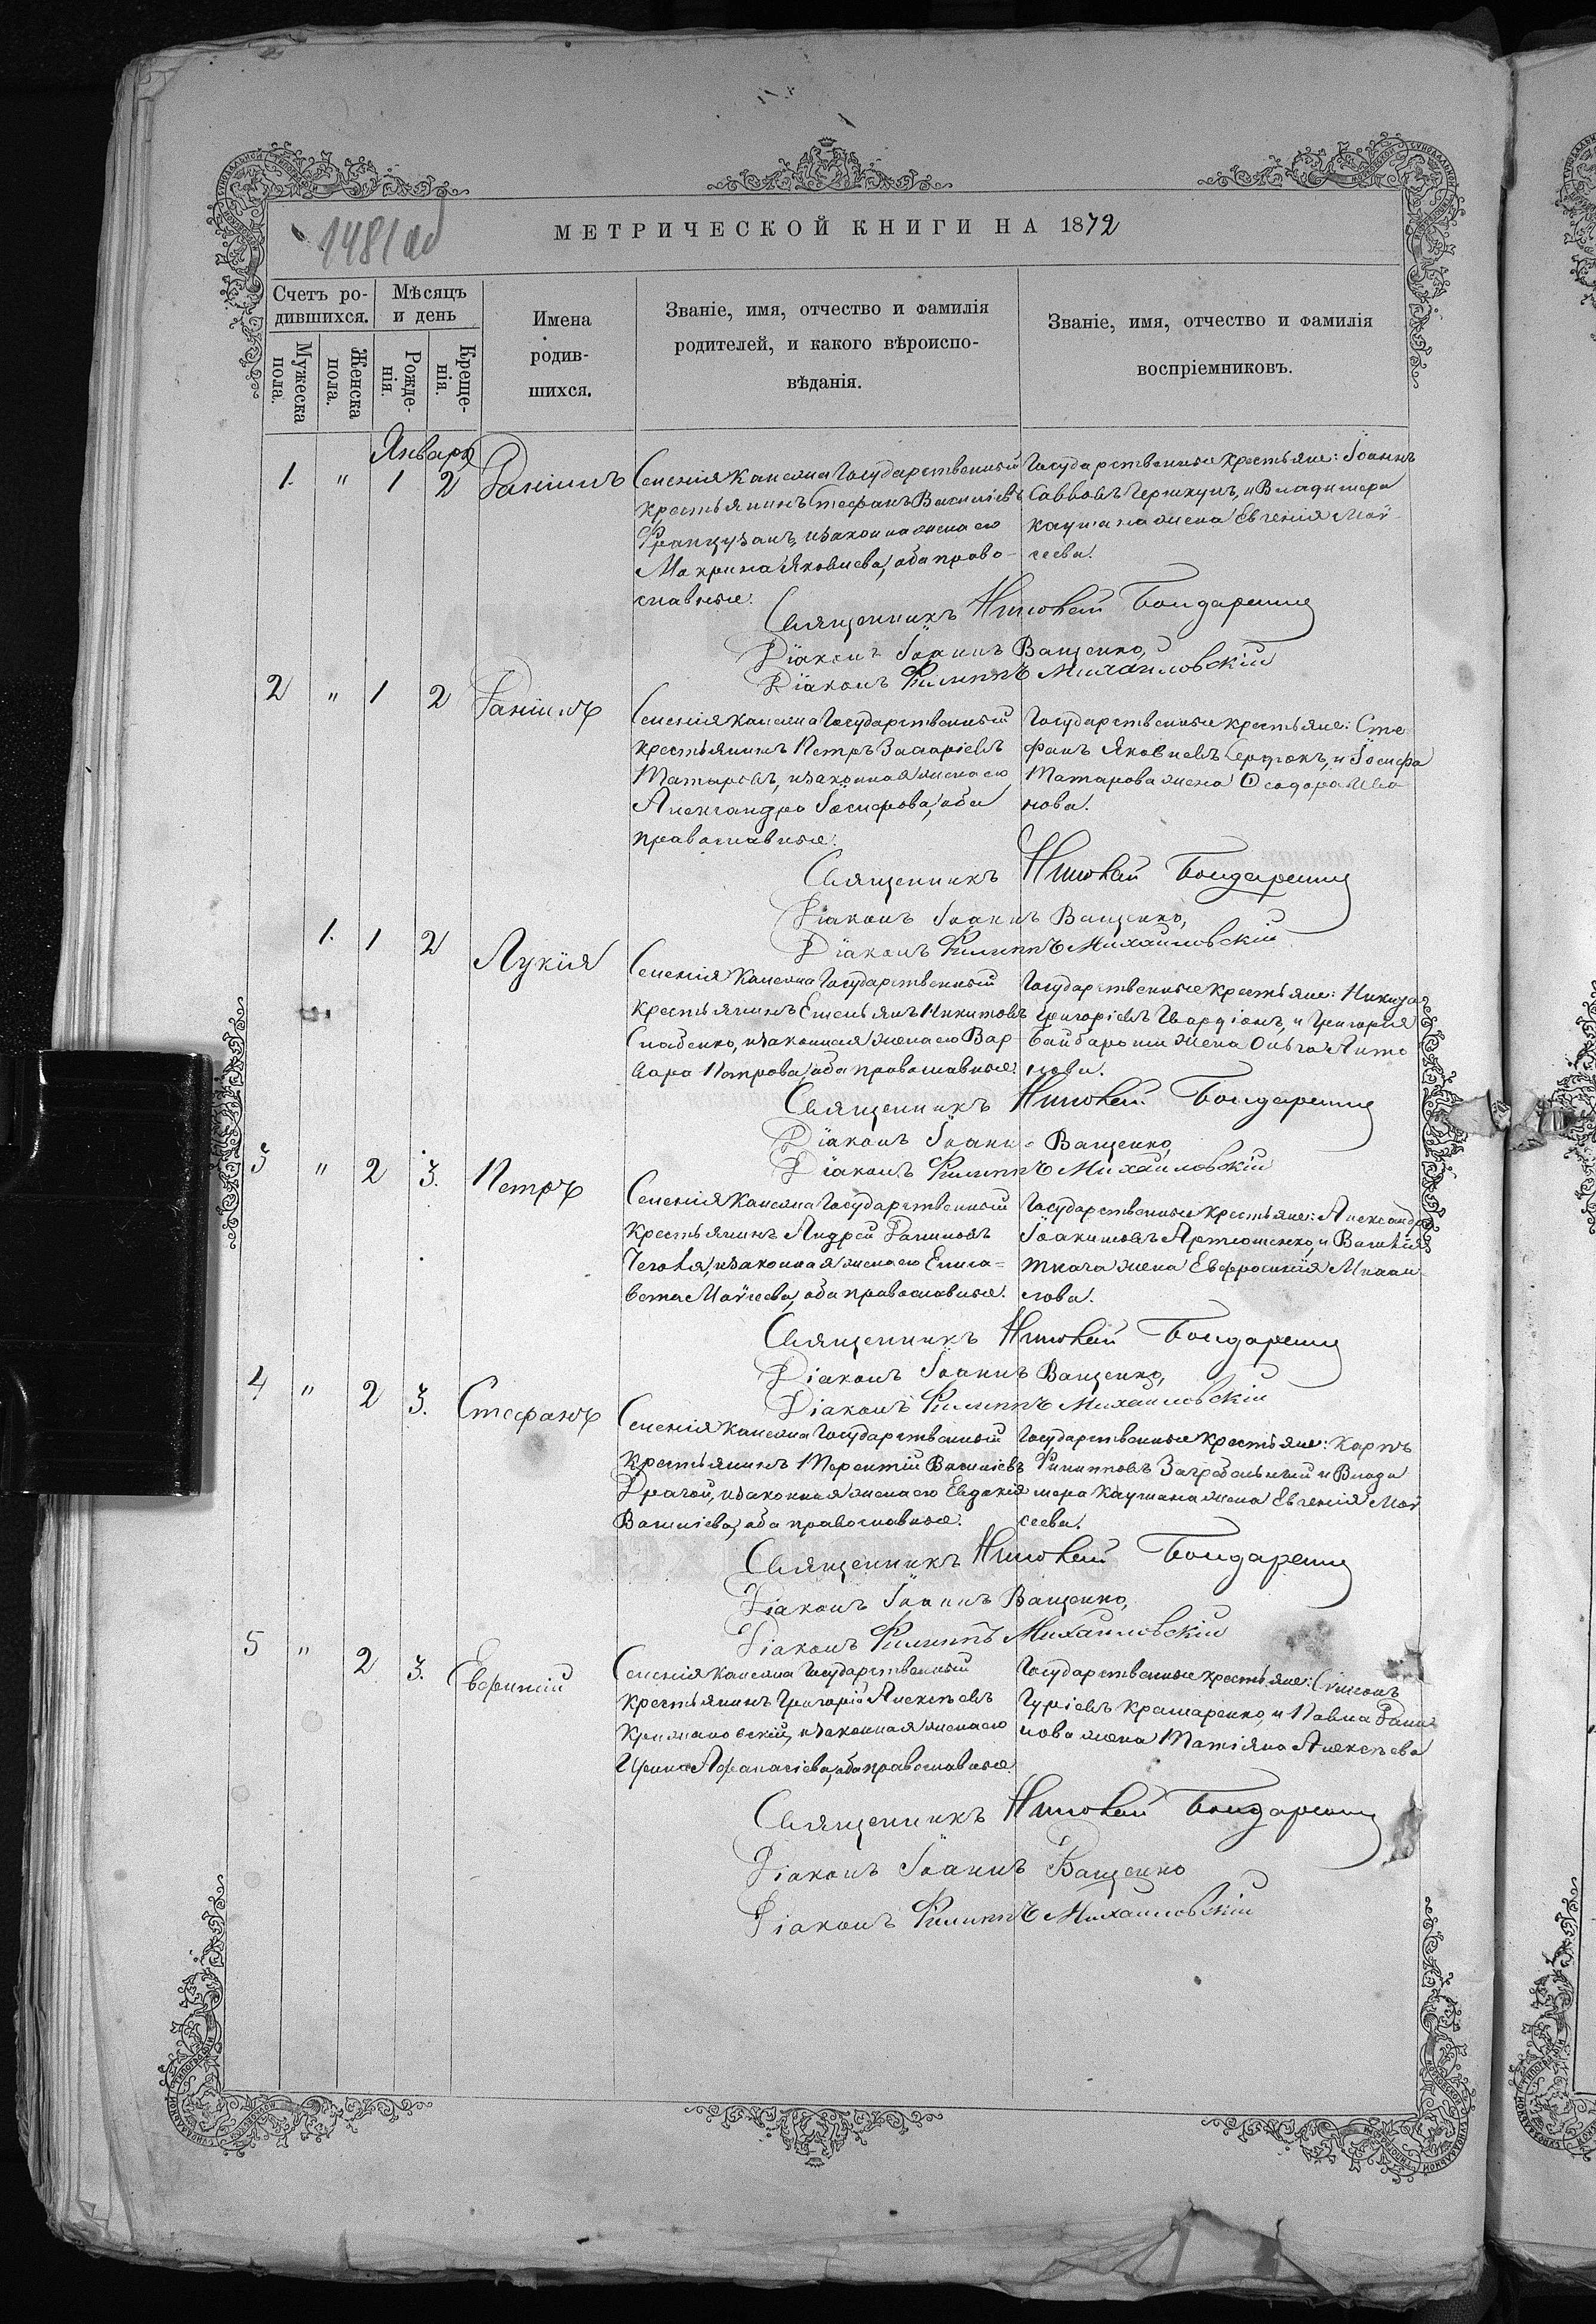 1481 об
МЕТРИЧЕСКОЙ КНИГИ НА 1872
Счетъ ро-
дившихся.
Мѣсяцъ
и день
Мужеска
пола.
Женска
пола.
Рожде-
нія.
Креще-
нія.
Имена
родив-
шихся.
Званіе, имя, отчество и фамилія
родителей, и какого вѣроиспо-
вѣданія.
Званіе, имя, отчество и фамилія
воспріемниковъ.
Январь
1. " 1 2 Даніилъ
Селенія Государственный
крестьянинъ Стефанъ Василіевъ
Французанъ, и законна жена его
Макрина Яковлева, оба право-
славные.
Государственные крестьяне: Іоаннъ
Саввовъ и Владимера
жена Евгенія Мой-
сеева.
Священникъ Бондаренко
Діаконъ Іоаннъ Ващенко,
Діаконъ Филиппъ Михайловскій
2 " 1 2 Даніилъ
Селенія Государственный
крестьянинъ Петръ Захаріевъ
Татаровъ, и законная жена его
Александра Іосифова, оба
православные.
Государственные крестьяне: Сте
фанъ Яковлевъ Сердюкъ, и Іосифа
Татарова жена Ѳеодора Ива
нова.
Священникъ Бондаренко
Діаконъ Іоаннъ Ващенко,
Діаконъ Филиппъ Михайловскій
1. 1 2 Лукія
Селенія Государственный
крестьянинъ Емельянъ Никитовъ
Слабенко, и законная жена его Вар-
вара Петрова, оба православные.
Государственные крестьяне: Никита
Григоріевъ и Григорія
жена Ольга Анто
нова.
Священникъ Бондаренко
Діаконъ Іоаннъ Ващенко,
Діаконъ Филиппъ Михайловскій
3 " 2 3. Петръ
Селенія Государственный
крестьянинъ Андрей Даниловъ
и законная жена его Елиса=
вета Мойсеева, оба православные.
Государственные крестьяне: Александръ
Іоакимовъ Артюшенко, и Василія
Ткача жена Евфросинія Михаи-
лова.
Священникъ Бондаренко
Діаконъ Іоаннъ Ващенко,
Діаконъ Филиппъ Михайловскій
4 " 2 3. Стефанъ
Селенія Государственный
крестьянинъ Терентій Василіевъ
Драгой, и законная жена его Евдокія
Василіева, оба православные.
Государственные крестьяне: Карпъ
Филипповъ Загребельный и Влади
мера жена Евгенія Мой
сеева.
Священникъ Бондаренко
Діаконъ Іоаннъ Ващенко,
Діаконъ Филиппъ Михайловскій
5 " 2 3. Евфимій
Селенія Государственный
крестьянинъ Григорій Алексѣевъ
Крижановскій, и законная жена его
Ирина Афанасіева, оба православные.
Государственные крестьяне: Симеонъ
Гуріевъ Крамаренко, и Павла Дани
лова жена Татіяна Алексѣева
Священникъ Бондаренко
Діаконъ Іоаннъ Ващенко
Діаконъ Филиппъ Михайловскій